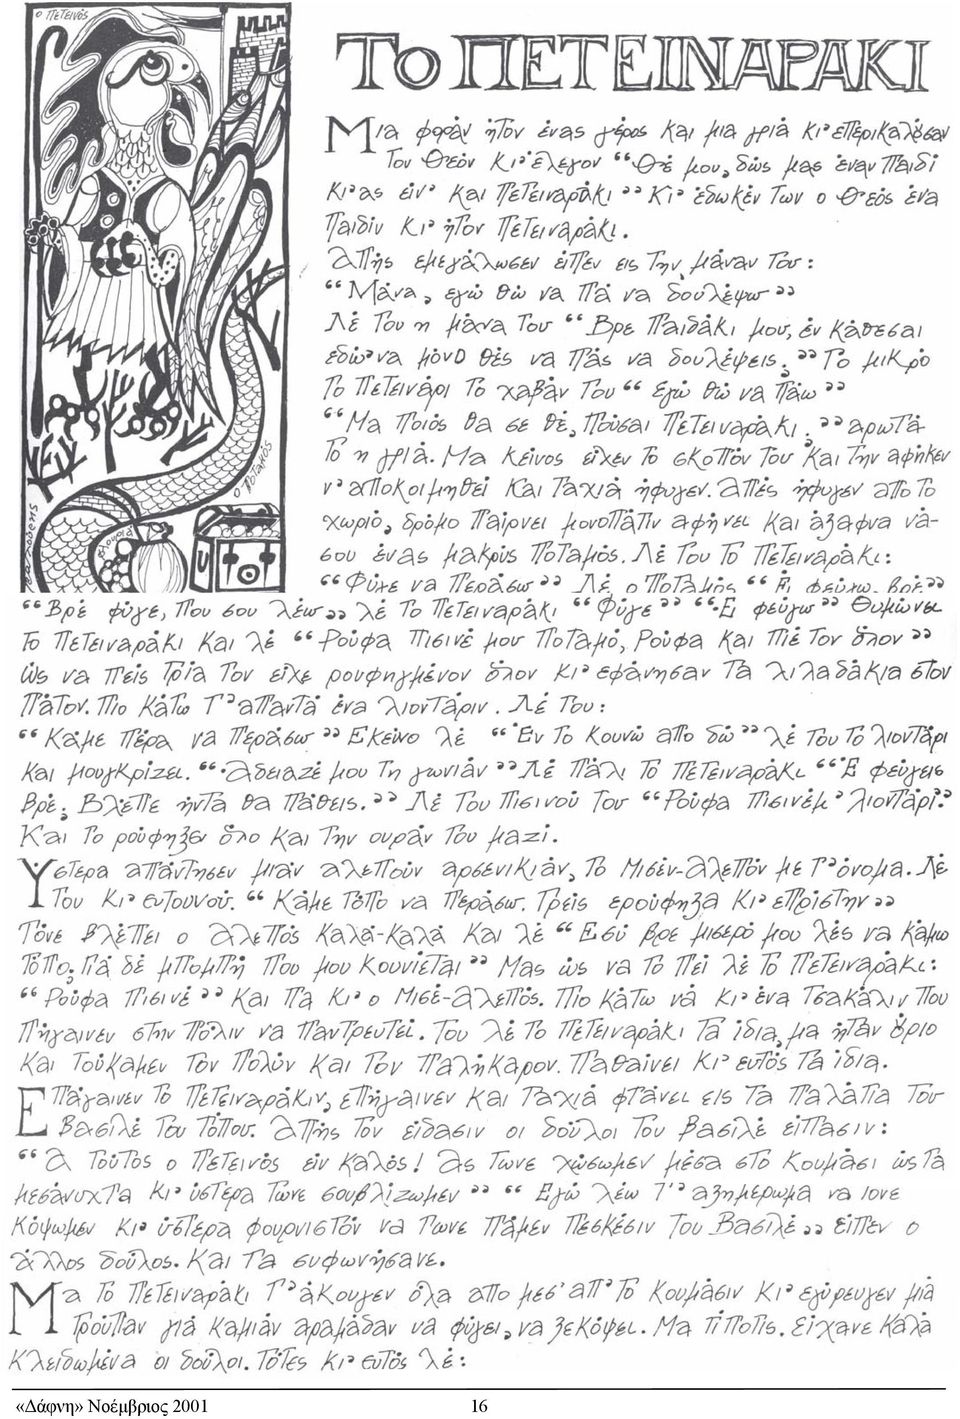 ο Πετεινός
ΤΟ ΠΕΤΕΙΝΑΡΑΚΙ
Μια φοράν ήτον ένας γέρος και μια γριά κι' επερικαλούσαν
τον Θεόν κι' έλεγον “Θέ μου, δώς μας έναν παιδί
κι' ας έν' και πετειναράκι” Κι' έδωκέν των ο Θεός ένα
παιδίν κι' ήτον πετειναράκι.
Απής εμεγάλωσεν είπεν εις την μάναν του:
“Μάνα, εγώ θώ να πά να δουλέψω”
Λέ του η μάνα του “Βρε παιδάκι μου, έν κάθεσαι
εδώ' να μόνο θές να πάς να δουλέψεις;” Το μικρό
το πετεινάρι το χαβάν του “Εγώ θώ να πάω”
“Μα ποιός θα σε θέ, πούσαι πετειναράκι;” αρωτά
το η γριά. Μα κείνος είχεν το σκοπόν του και την αφήκεν
ν' αποκοιμηθεί και ταχιά ήφυγεν. Απές ήφυγεν απο το
χωριό, δρόμο παίρνει μονοπάτιν αφήνει και άξαφνα νά-
σου ένας μακρύς ποταμός. Λέ του το πετειναράκι:
“Φύγε να περάσω” Λέ ο ποταμός “Ε φεύγω, βρέ”
ο Ποταμός
φλουριά
“Βρέ φύγε, που σου λέω” λέ το πετειναράκι “Φύγε” “Ε φεύγω” Θυμώνει
το πετειναράκι και λέ “Ρούφα πισινέ μου ποταμό, ρούφα και πιέ τον όλον”
Ως να πείς τρία τον είχε ρουφηγμένον όλον κι' εφάνησαν τα λιλαδάκια στον
πάτον. Πιο κάτω τ' απαντά ένα λιοντάριν. Λέ του:
“Κάμε πέρα να περάσω” Εκείνο λέ “Έν το κουνώ απο δώ” λέ του το λιοντάρι
και μουγκρίζει. “Άδειαζέ μου τη γωνιάν” Λέ πάλι το πετειναράκι “Ε φεύγεις
βρέ; Βλέπε ήντα θα πάθεις.” Λέ του πισινού του “Ρούφα πισινέμ' λιοντάρι”
Και το ρούφηξεν όλο και την ουράν του μαζί.
Υστερα απάντησεν μιαν αλεπούν αρσενικιάν, το Μισέν-Αλεπόν με τ' όνομα. Λέ
του κι' ευτουνού. “Κάμε τόπο να περάσω. Τρείς ερούφηξα κι' επρίστην”
Τόνε βλέπει ο Αλεπός καλά-καλά και λέ “Εσύ βρε μισερό μου λές να κάμω
τόπο; Γιά δέ μπομπή που μου κουνιέται” Μας ώς να το πεί λέ το πετειναράκι:
“Ρούφα πισινέ” και πά κι' ο Μισέ-Αλεπός. Πιο κάτω νά κι' ένα τσακάλιν που
πήγαινεν στην πόλιν να παντρευτεί. Του λέ το πετειναράκι τα ίδια, μα ήταν όριο
και τούκαμεν τον πολύν και τον παλήκαρον. Παθαίνει κι' ευτός τα ίδια.
Επάγαινεν το πετειναράκιν, επήγαινεν και ταχιά φτάνει εις τα παλάτια του
βασιλέ του τόπου. Απής τον είδασιν οι δούλοι του βασιλέ είπασιν:
“Α τούτος ο πετεινός είν καλός! Ας τωνε χώσωμεν μέσα στο κουμάσι ώς τα
μεσάνυχτα κι' ύστερα τωνε σουβλίζωμεν” “Εγώ λέω τ' αξημέρωμα να τονε
κόψωμεν κι' ύστερα φουρνιστόν να τωνε πάμεν πεσκέσιν του Βασιλέ” είπεν ο
άλλος δούλος. Και τα συφωνήσανε.
Μα το πετειναράκι τ' άκουγεν όλα απο μεσ' απ' το κουμάσιν κι' εγύρευγεν μιά
τρούπαν γιά καμιάν αραμάδαν να φύγει, να ξεκόψει. Μα τίποτις. Είχανε καλά
κλειδωμένα οι δούλοι. Τότες κι' ευτός λέ:
«Δάφνη» Νοέμβριος 2001 16